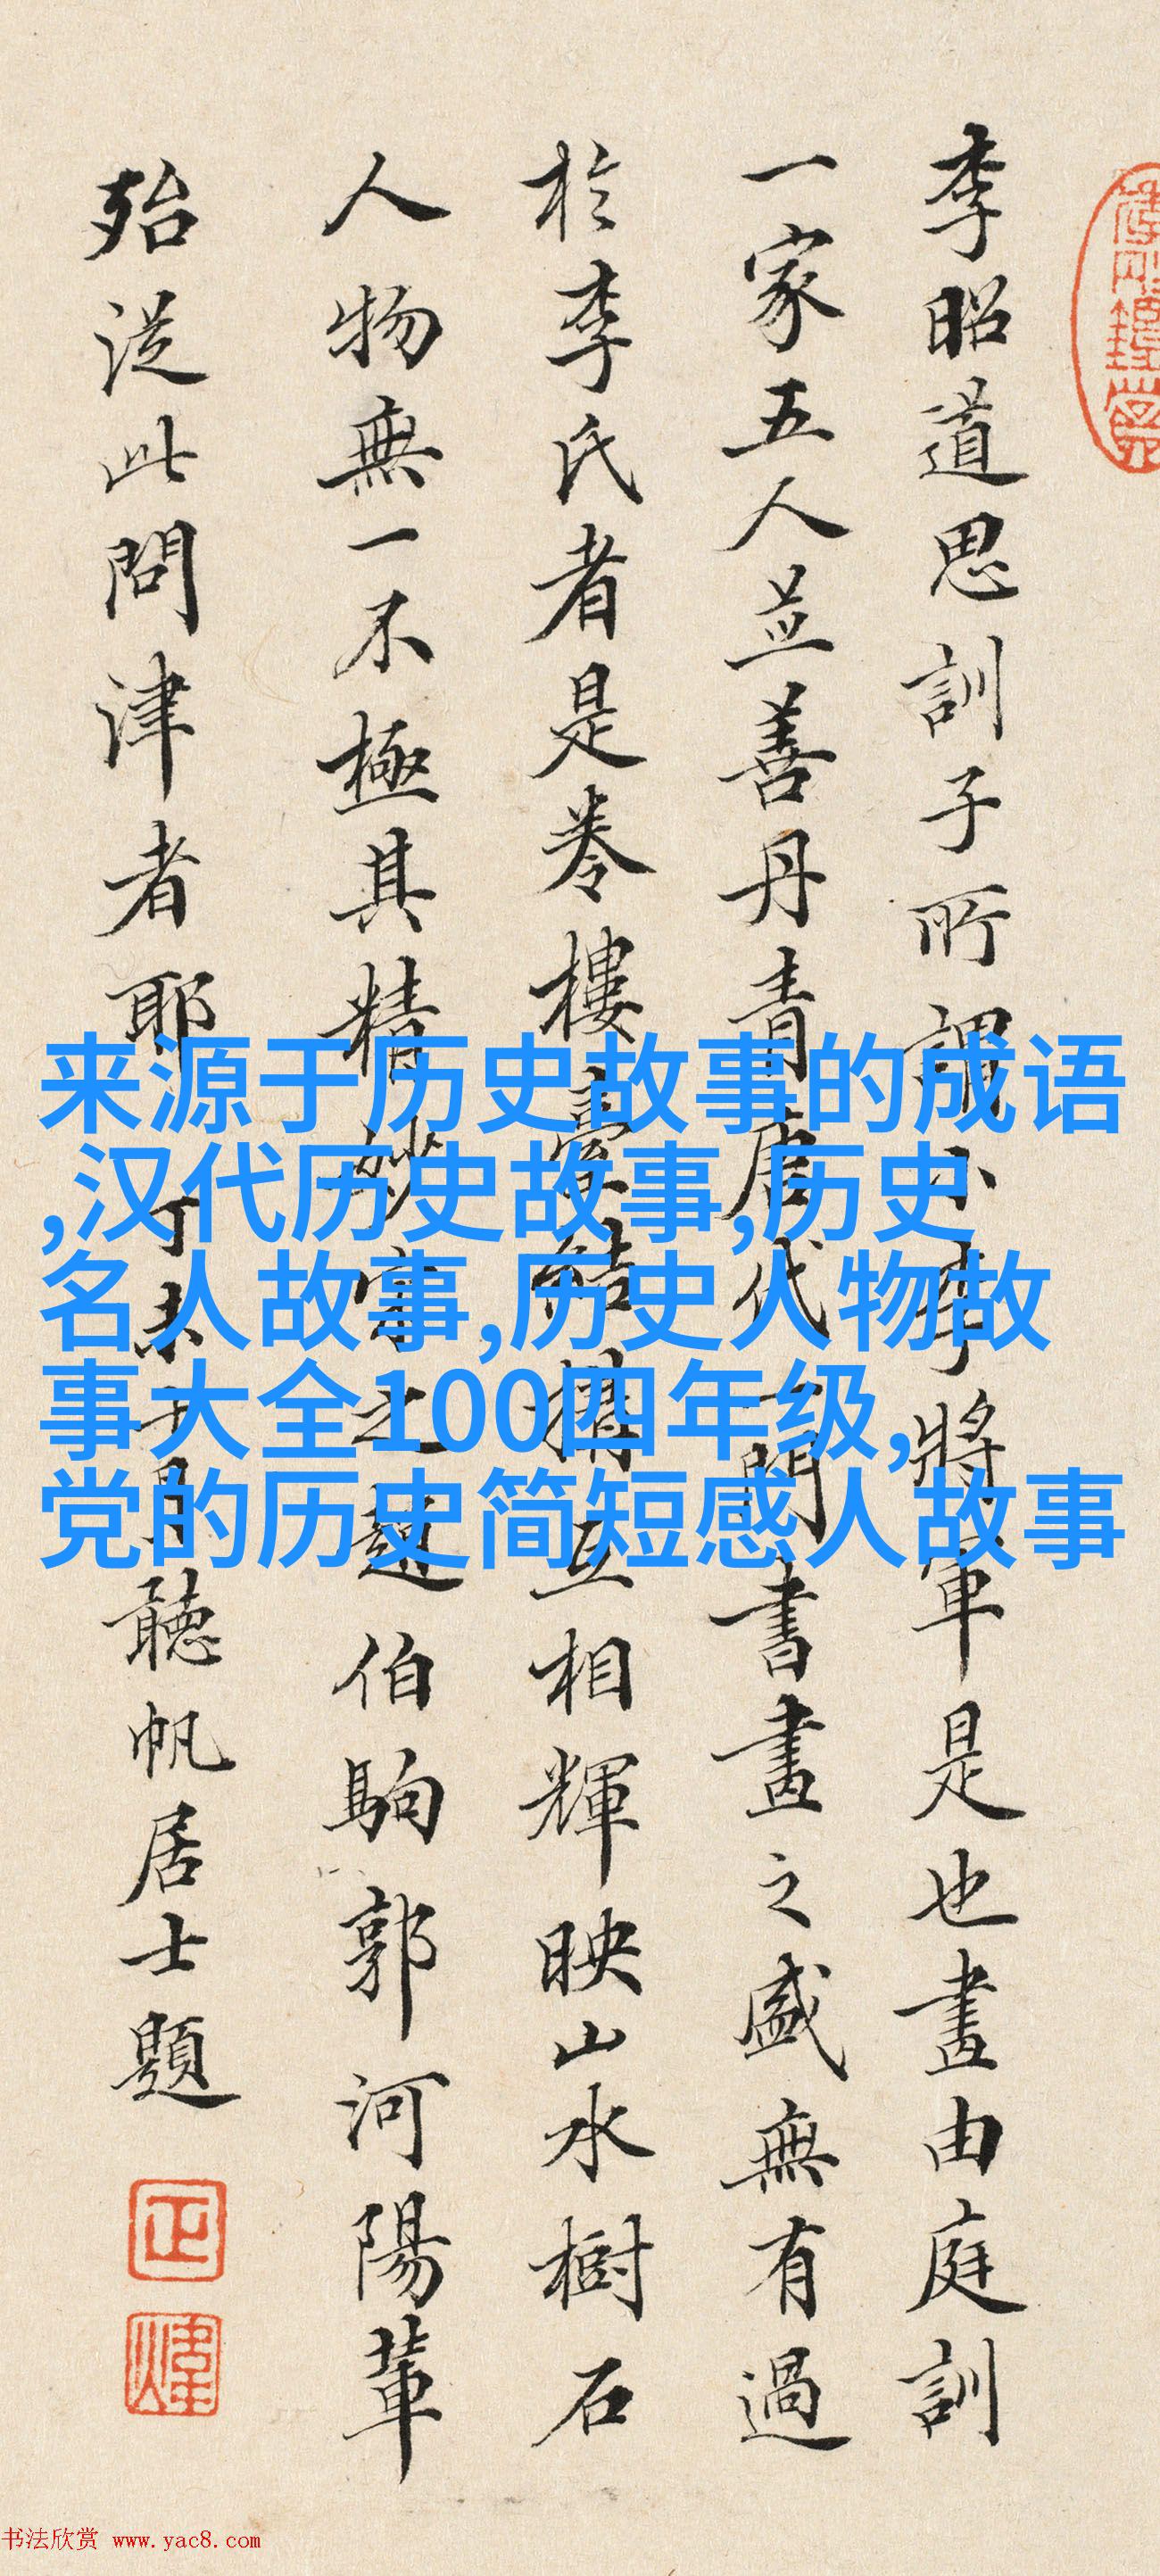 李昭道思訓子所謂小李將軍是也畫由庭訓
一家五人並善丹青唐代一門書畫之盛無有過
於李氏者是卷樓臺結構互相輝映山水樹石
人物無一不極其精妙宋之趙伯駒郭河陽輩
殆從此問津者耶丁未十月聽帆居士題
正
煒
来源于历史故事的成语
,汉代历史故事,历史
名人故事,历史人物故
事大全100四年级,
党的历史简短感人故事
书法欣赏 www.yac8.com